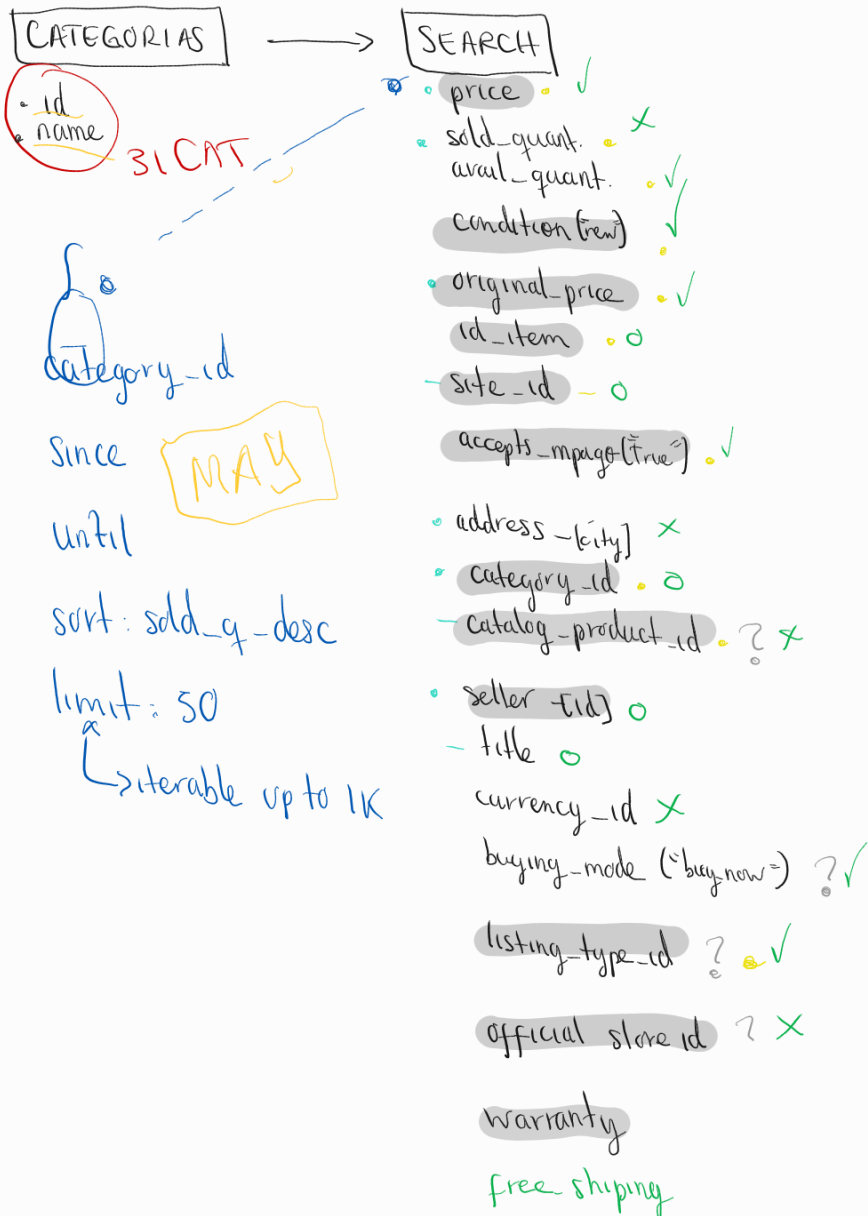 CATEGORIAS
• id
• name
31 CAT
category_id
since
MAY
until
sort: sold_q_desc
limit: 50
iterable up to 1K
SEARCH
price
sold_quant.
avail_quant.
condition ("new")
original_price
id_item
site_id
accepts_mpago ("True")
address_[city]
category_id
catalog_product_id ?
seller_[id]
title
currency_id
buying_mode ("buy_now") ?
listing_type_id ?
official store id ?
warranty
free_shiping